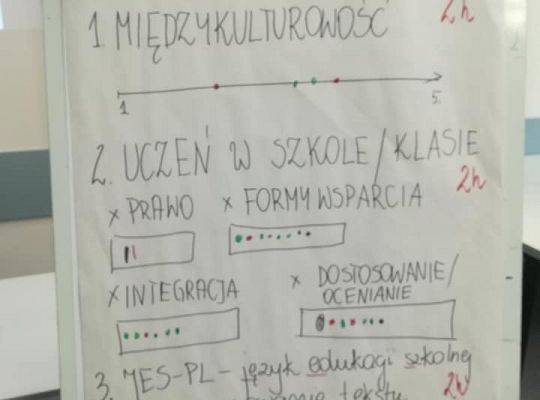 1 MIĘDZYKULTUROWOŚĆ 2h
1 5
2. UCZEŃ W SZKOLE/KLASIE 2h
x PRAWO x FORMY WSPARCIA
x INTEGRACJA x DOSTOSOWANIE/
OCENIANIE
3. JES-PL - język edukacji szkolnej
tekstu 2h